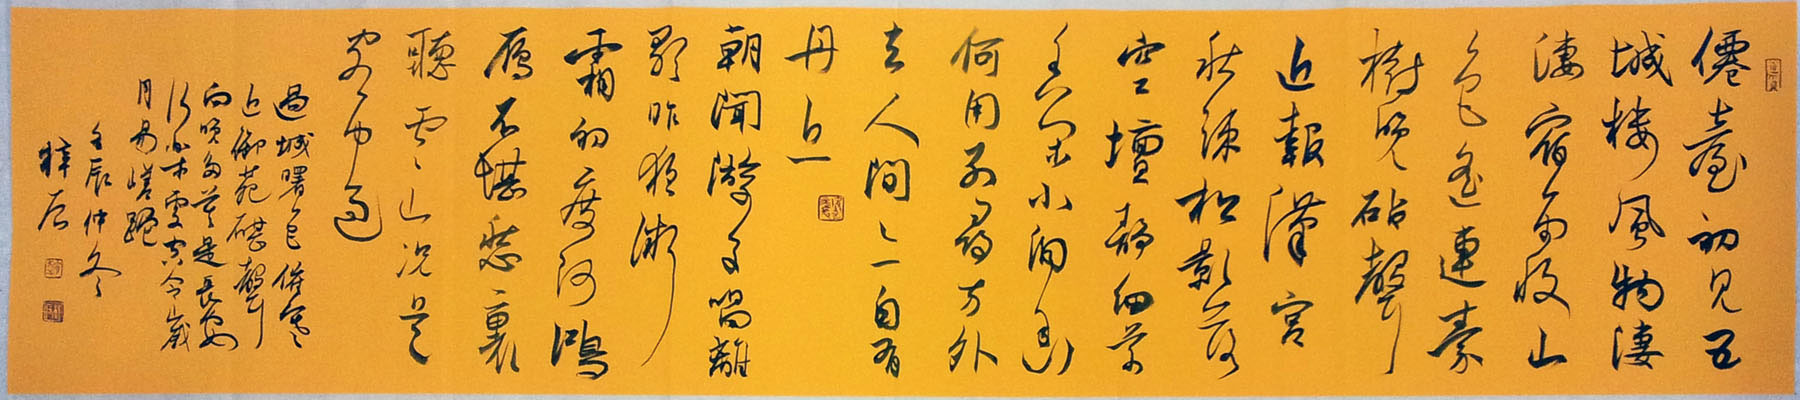 僊臺初見五
城樓風物淒
淒宿雨收山
色遙連秦
樹晚砧聲
近報漢宮
秋疎松影落
空壇靜細草
香閑小洞幽
何用別尋方外
去人間亦自有
丹丘
朝聞遊子唱離
歌昨夜微
霜初度河鴻
雁不堪愁裏
聽雲山況是
客中過
過城曙色催寒
近御苑砧聲
向晚多莫是長安
行樂處空令歲
月易蹉跎
壬辰仲冬
梓辰